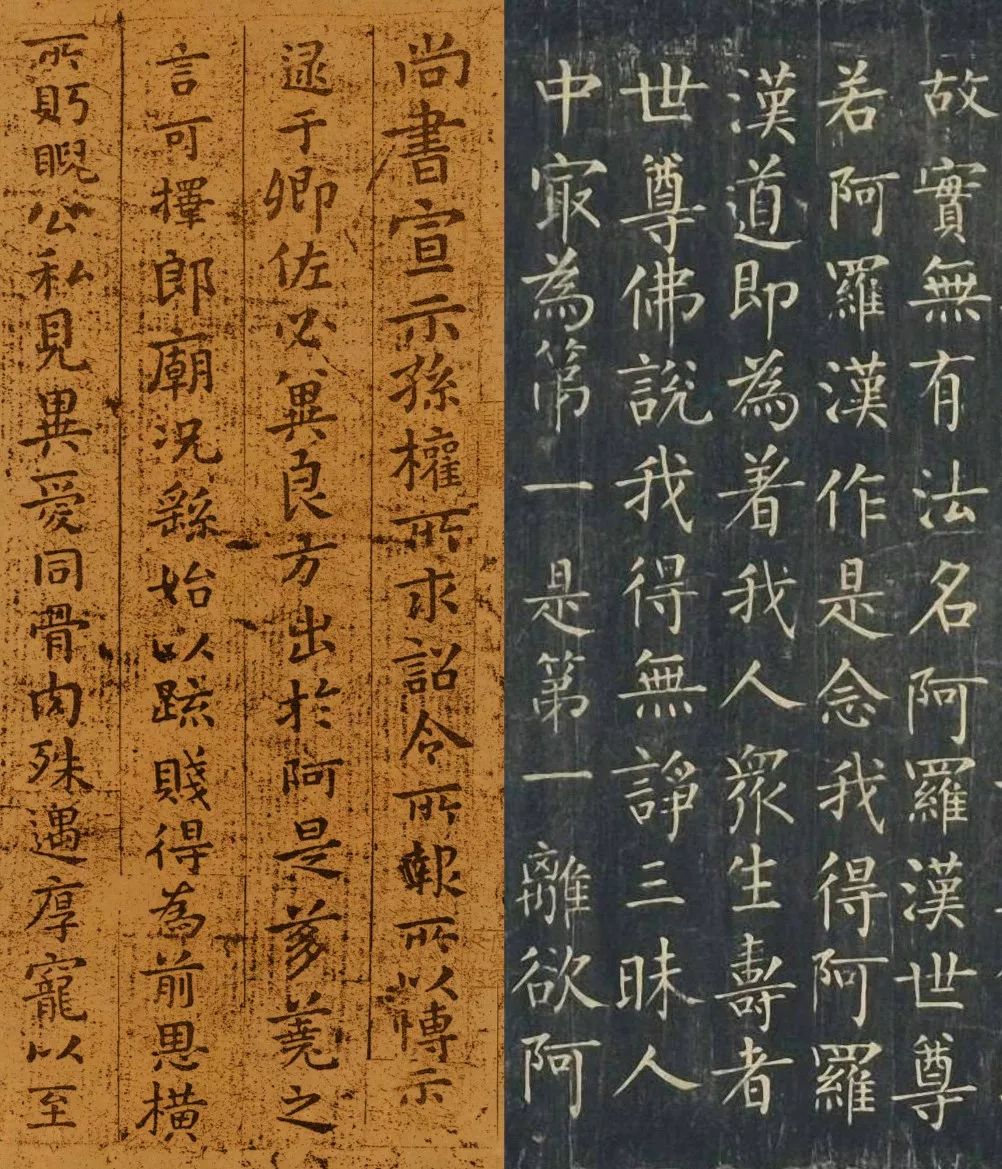 故實無有法名阿羅漢世尊
若阿羅漢作是念我得阿羅
漢道即為著我人眾生壽者
世尊佛說我得無諍三昧人
中冣為第一是第一離欲阿
尚書宣示孫權所求詔令所報所以博示
逮于卿佐必冀良方出於阿是芻蕘之
言可擇郎廟況繇始以疏賤得為前恩橫
所盻睨公私見異愛同骨肉殊遇厚寵以至